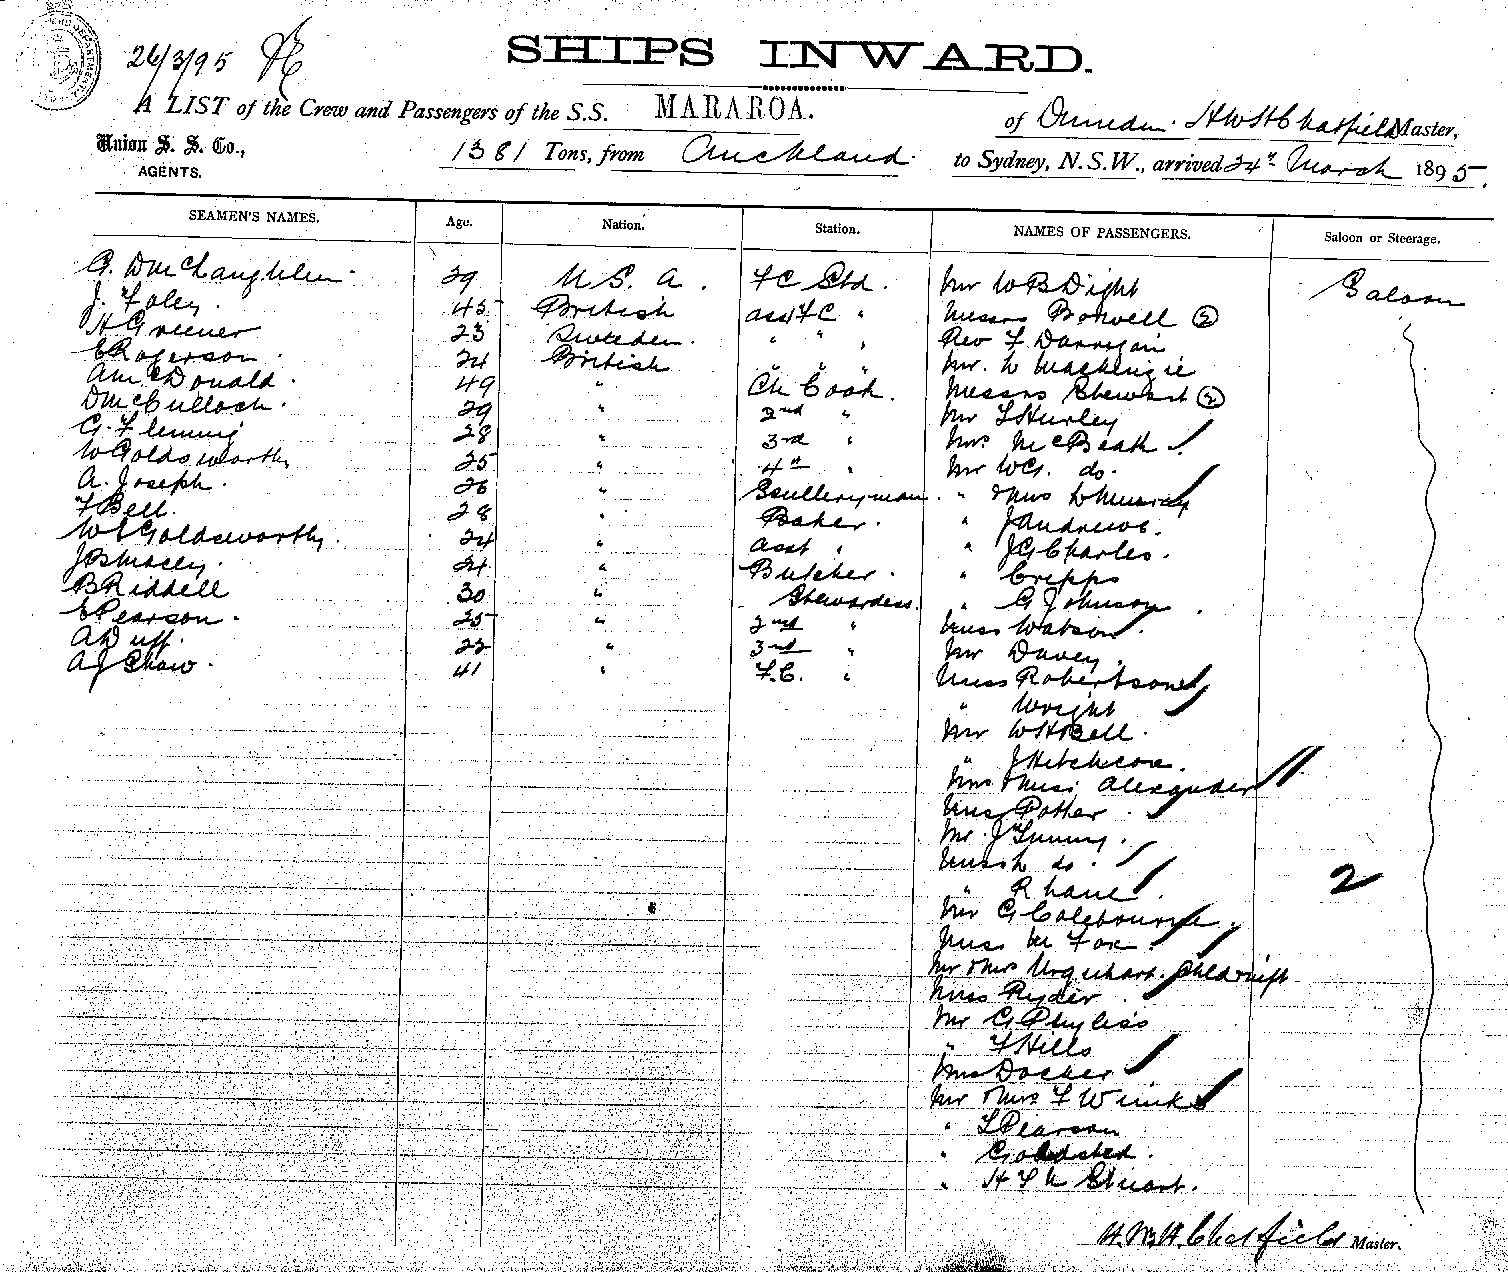 26/3/95
SHIPS INWARD.
A LIST of the Crew and Passengers of the S.S. MARAROA. of Dunedin. H W H Chatfield Master,
Union S. S. Co., AGENTS. 1381 Tons, from Auckland. to Sydney, N.S.W., arrived 24th March 1895.
SEAMEN'S NAMES. Age. Nation. Station. NAMES OF PASSENGERS. Saloon or Steerage.
G. D McLaughlin 29 U. S. A. F C Std. Mr W B Dight Saloon
J. Foley. 45 British asst F C " Messrs Boswell (2)
H Greener 23 Sweden. " " " Rev F
E Rogerson 24 British " " " Mr. L Mackenzie
A McDonald. 49 " Ch Cook. Messrs Stewart (2)
D McCulloch. 29 " 2nd " Mr T Hurley
G. Fleming 28 " 3rd " Mrs McBeath
W Goldsworthy 25 " 4th " Mr W G. do.
A. Joseph. 26 " Sculleryman. " & Mrs L Murray
F Bell. 28 " Baker. " J Andrewes.
W E Goldsworthy. 24 " asst " " J G Charles.
J B Macey. 24 " Butcher. " Cripps
B Riddell 30 " Stewardess. " G Johnson
E Pearson. 25 " 2nd " Miss Watson
A Duff. 22 " 3rd " Mr Davey.
A J Shaw. 41 " F. C. " Miss Robertson
" Wright
Mr W H Bell.
" J Hitchcox.
Mrs & Miss Alexander
Miss Potter
Mr. J
Miss L do.
" R Lane
Mr G Colebourne
Miss M Fox.
Mr & Mrs Urquhart. Child & inft
Miss Ryder
Mr G Phyliss
" F Hills
Mrs Docker
Mr & Mrs F Winks
" T Pearson
"
" H F M Stuart.
2
H. W. H. Chatfield Master.